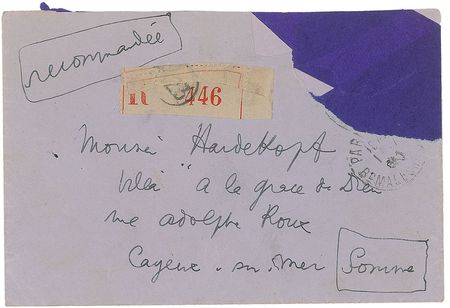 recommandée
R 446
Monsieur Hardekopf
Villa "A la grace de Dieu
rue Adolphe Roux
Cayeux-sur-mer Somme
PARIS